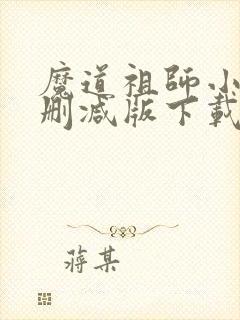 魔道祖師小
刪減版下載
蔣某